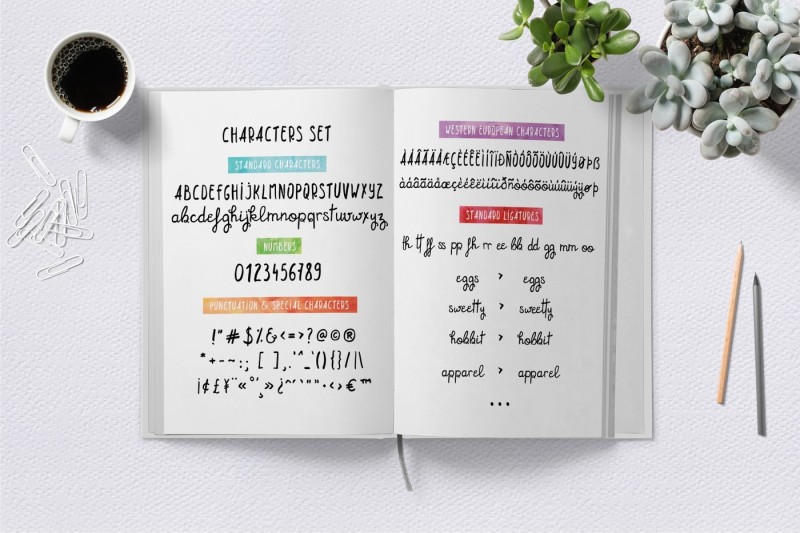 CHARACTERS SET
STANDARD CHARACTERS
ABCDEFGHIJKLMNOPQRSTUVWXYZ
abcdefghijklmnopqrstuvwxyz
NUMBERS
0123456789
PUNCTUATION & SPECIAL CHARACTERS
!"#$%&<=>?@©®
*+-~:; [ ],.'^_`(){}/|\
¡¢£¥¨«°´¸»¿ˆ˜‘’“”•‹›€™
WESTERN EUROPEAN CHARACTERS
ÀÁÂÃÄÅÆÇÈÉÊËÌÍÎÏÐÑÒÓÔÕÖÙÚÛÜÝØÞß
àáâãäåæçèéêëìíîïðñòóôõöùúûüýÿøþ
STANDARD LIGATURES
th tt ff ss pp fh rr ee bb dd gg mm oo
eggs > eggs
sweetty > sweetty
hobbit > hobbit
apparel > apparel
...